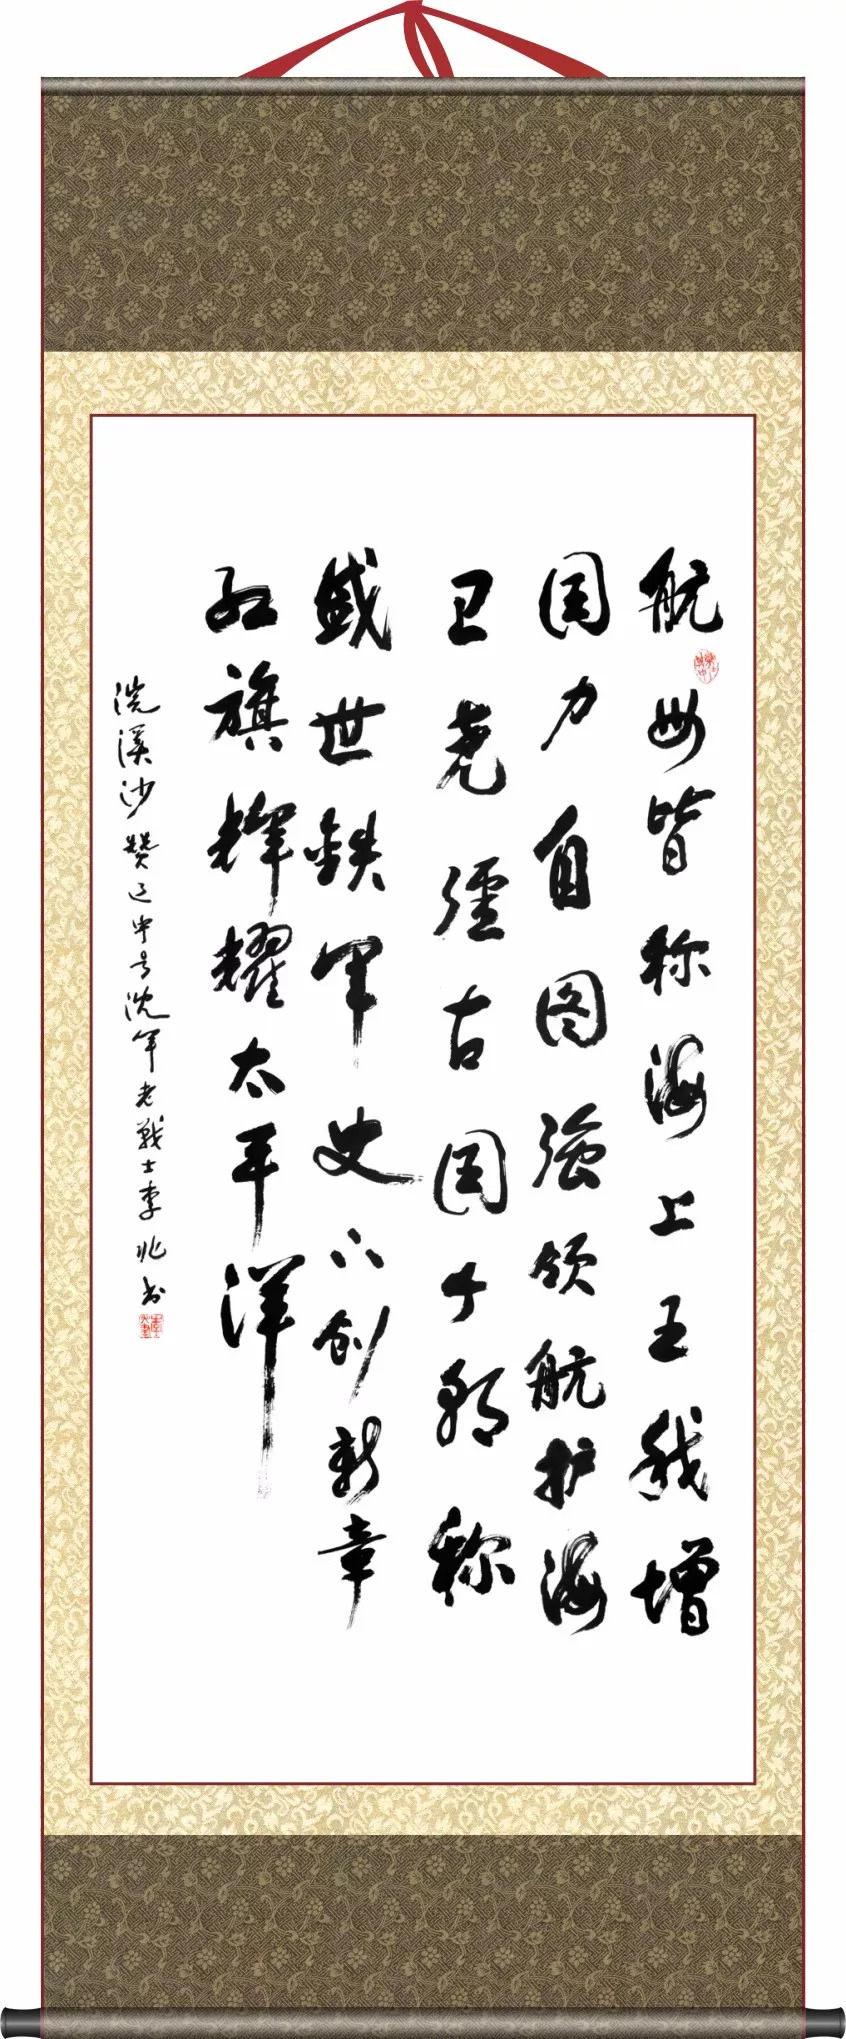 航母皆称海上王我增
国力自图强领航护海
卫尧疆古国今朝称
盛世铁军史创新章
红旗辉耀太平洋
浣溪沙赞辽宁号沈军老战士李兆书